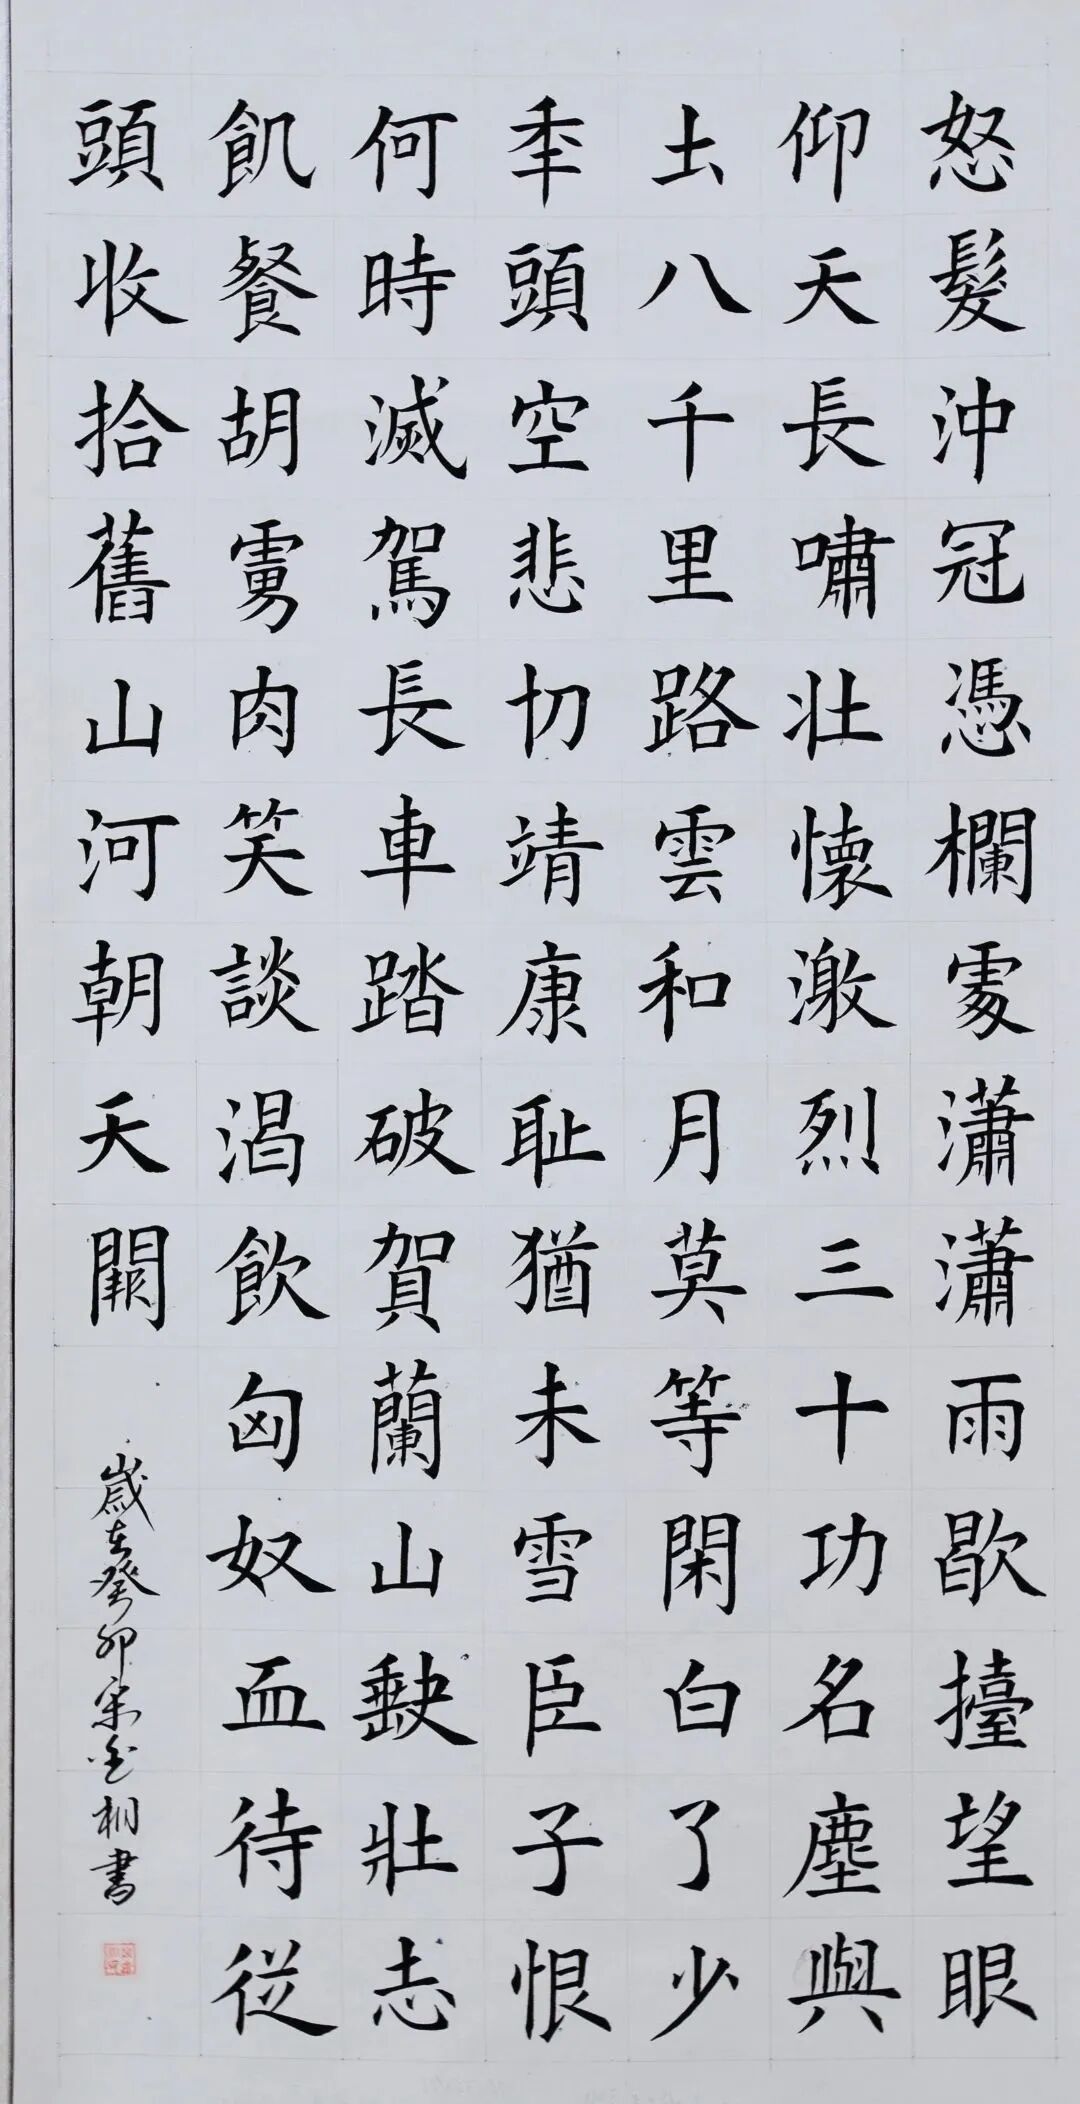 怒髮沖冠憑欄處瀟瀟雨歇擡望眼
仰天長嘯壯懷激烈三十功名塵與
土八千里路雲和月莫等閑白了少
秊頭空悲切靖康耻猶未雪臣子恨
何時滅駕長車踏破賀蘭山缺壯志
飢餐胡虜肉笑談渴飲匈奴血待從
頭收拾舊山河朝天闕
歲在癸卯宋書